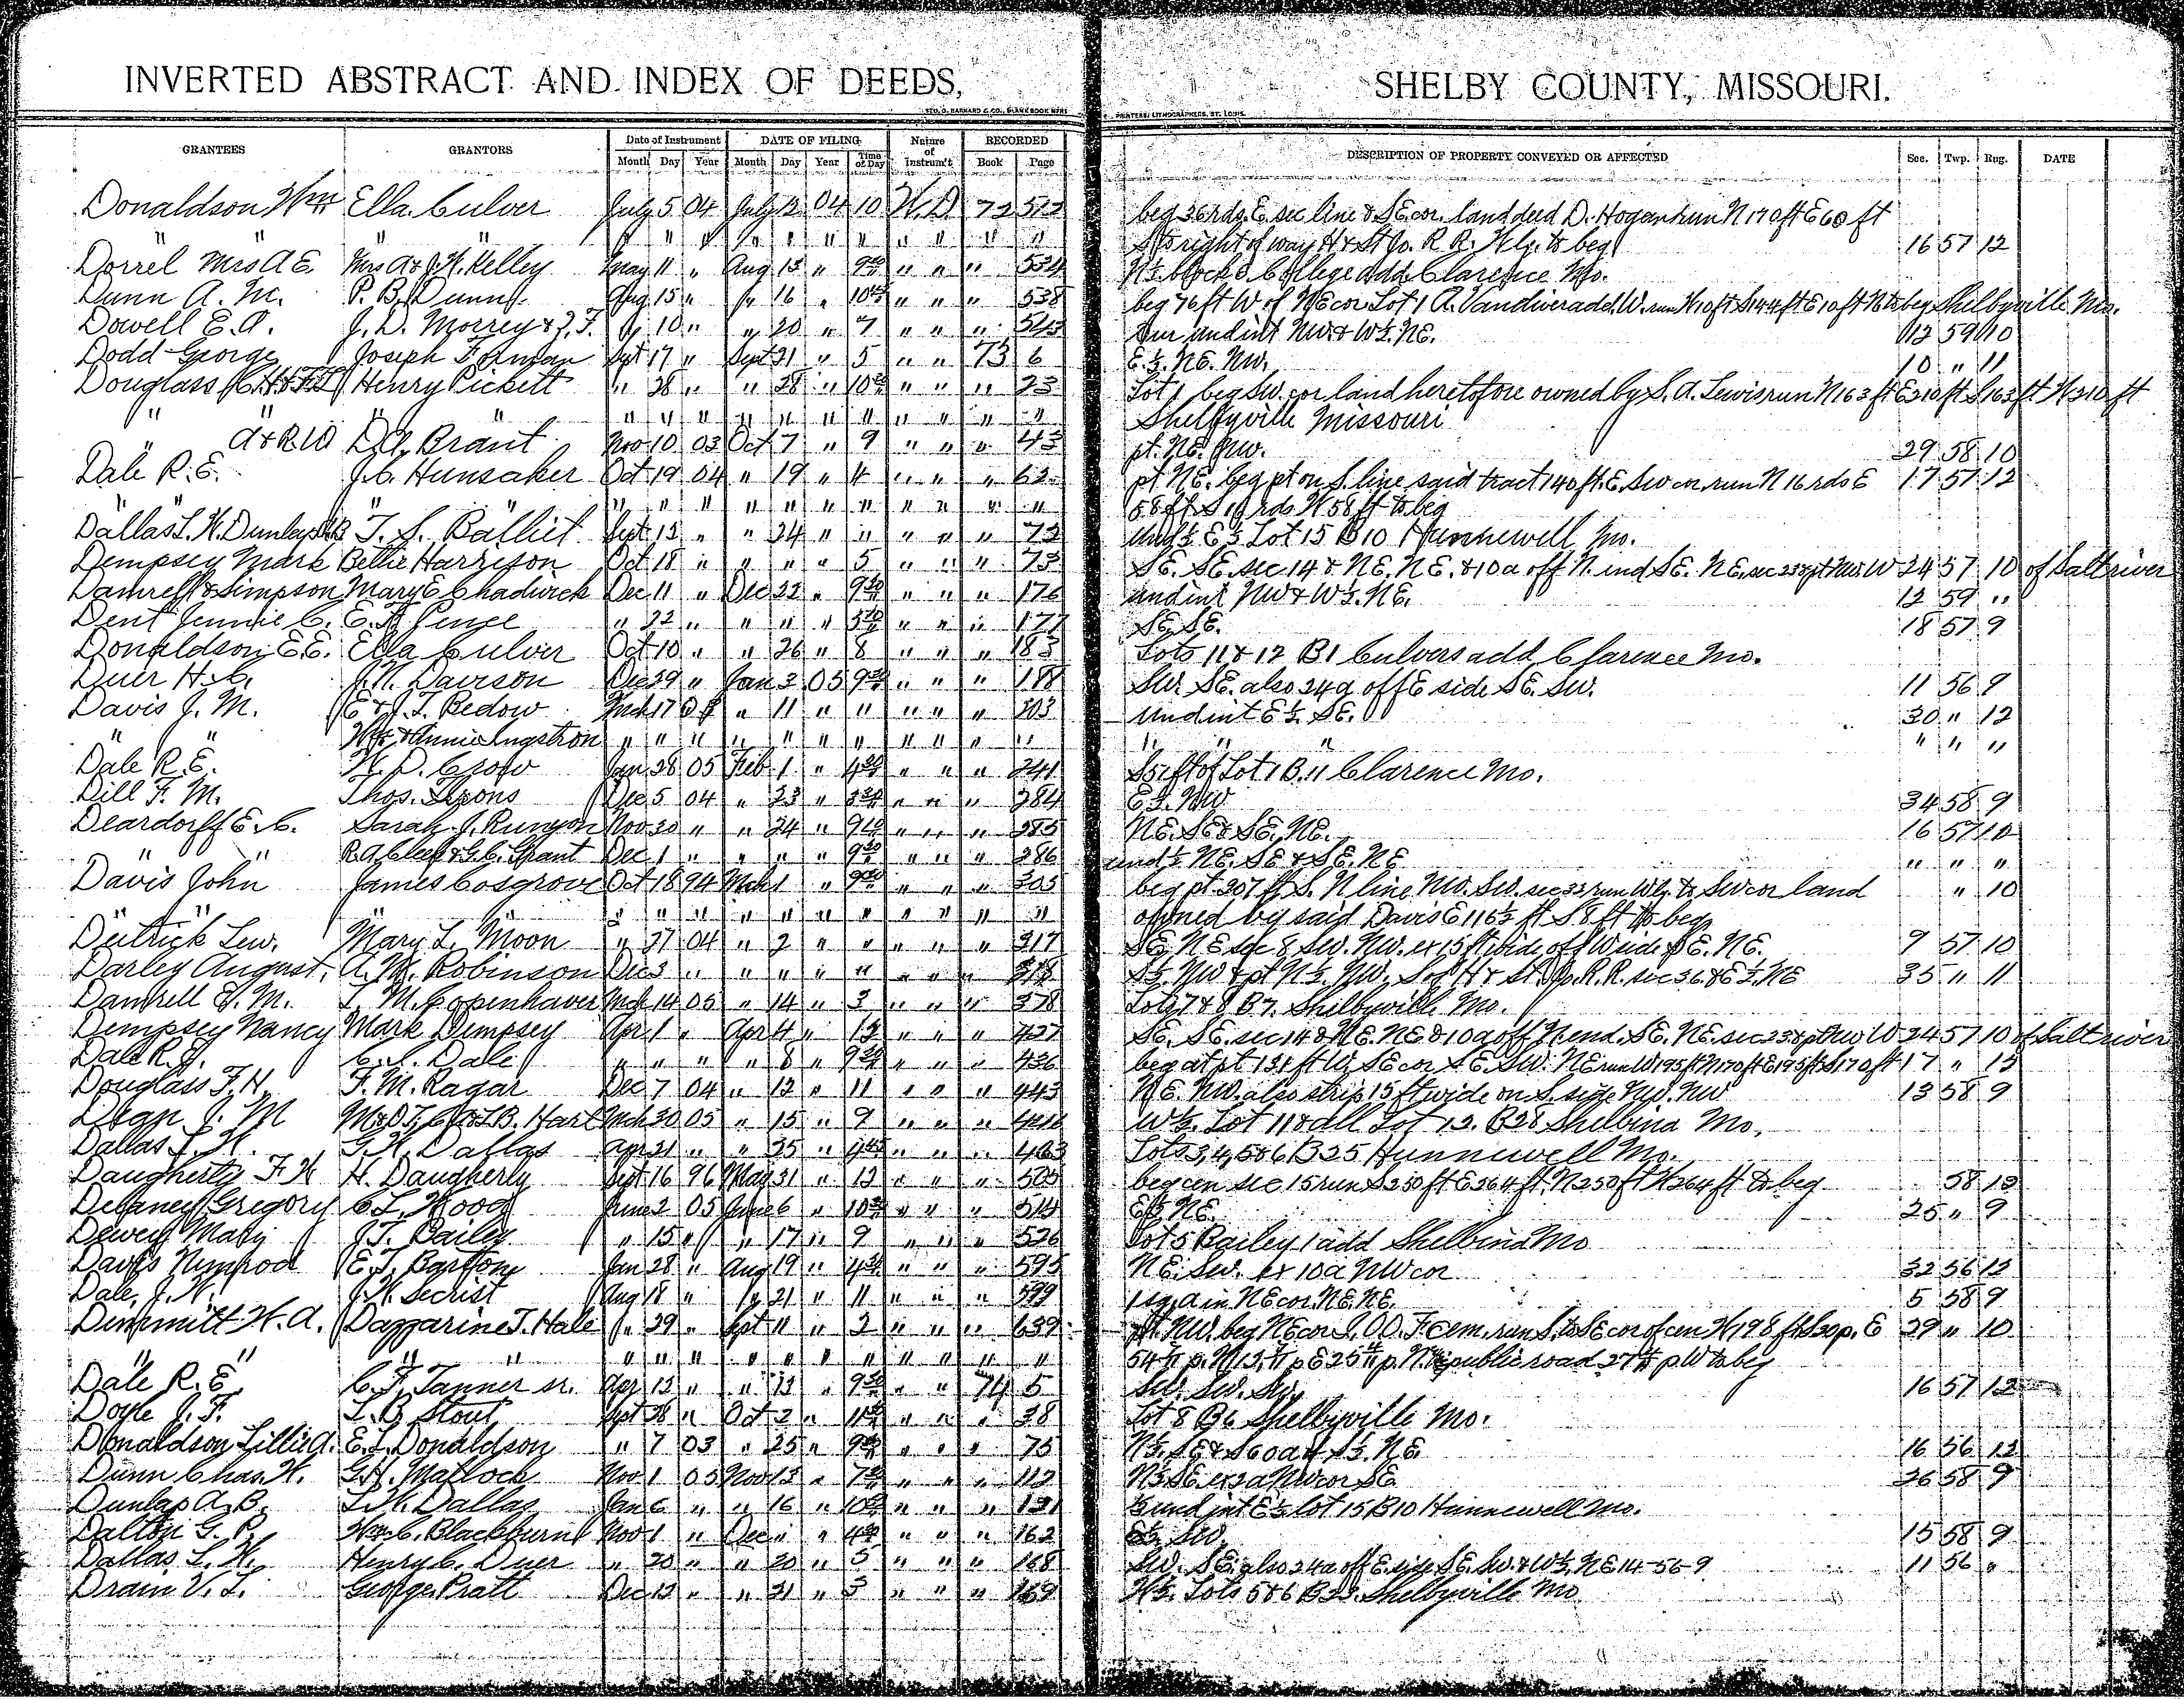 INVERTED ABSTRACT AND INDEX OF DEEDS, SHELBY COUNTY, MISSOURI.
GEO. D. BARNARD & CO., BLANK BOOK MFRS PRINTERS, LITHOGRAPHERS, ST. LOUIS.
GRANTEES GRANTORS Date of Instrument DATE OF FILING Nature of Instrum't RECORDED DESCRIPTION OF PROPERTY CONVEYED OR AFFECTED Sec. Twp. Rng. DATE
Month Day Year Month Day Year Time of Day Book Page
Donaldson Wm Ella Culver July 5 04 July 12 04 10 W.D. 72 512 beg 36 rds E sec line & SE cor. land deed D. Hogan run N 170 ft E 60 ft
" " " " " " " " " " " " " " S to right of way H & St Jo. R R. Wly. to beg 16 57 12
Dorrel Mrs A E. Mrs A & J. W. Kelley May 11 " Aug 15 " 9 " " " 534 N½ block 8 College add. Clarence Mo.
Dunn A. M. P. B. Dunn Aug 15 " " 16 " 10 " " " 538 beg 76 ft W of NE cor Lot 1 A. Vandiver add. W. run W 10 ft S 144 ft E 10 ft N to beg Shelbyville Mo.
Dowell E. A. J. D. Morrey & J. F. " 10 " " 20 " 7 " " " 543 Our und int NW & W½ NE. 12 59 10
Dodd George Joseph Forman Sept 17 " Sept 21 " 5 " " 73 6 E½ NE. NW. 10 " 11
Douglass Henry Pickett " 28 " " 28 " 10 " " " 23 Lot 1 beg SW. cor land heretofore owned by S. A. Lewis run N 163 ft E 210 ft S 163 ft W 210 ft
" " " " " " " " " " " " " Shelbyville Missouri
" A & R W D. A. Brant Nov 10 03 Oct 7 " 9 " " " 43 pt. NE. NW. 29 58 10
Dale R. E. J. C. Hunsaker Oct 19 04 " 19 " 4 " " " 62 pt NE. beg pt on S. line said tract 140 ft. E. SW cor. run N 16 rds E 17 57 12
" " " " " " " " " " " " " " 58 ft S 16 rds W 58 ft to beg
Dallas L. W. Dunlap T. S. Balliet Sept 13 " " 24 " " " " " 73 und ½ E½ Lot 15 B 10 Hunnewell Mo.
Dempsey Mark Bettie Harrison Oct 18 " " " " 5 " " " 73 SE. SE. sec 14 & NE. NE. & 10 a off N. end SE. NE. sec 23 & pt NW. W 24 57 10 of Salt river
Damrell & Simpson Mary E Chadwick Dec 11 " Dec 22 " 9 " " " 176 und int NW & W½ NE. 12 59 "
Dent Jennie C. E. A. Pence " 22 " " " " 5 " " " 177 SE. SE. 18 57 9
Donaldson E. E. Ella Culver Oct 10 " " 26 " 8 " " " 183 Lots 11 & 12 B 1 Culvers add Clarence Mo.
Duer H. C. J. N. Davison Dec 29 " Jan 3 05 9 " " " 188 SW. SE. also 24 a off E side SE. SW. 11 56 9
Davis J. M. E & J. T. Bedow Mch 17 " 11 " " " " " 203 und int E½ SE. 30 " 12
" " Wm & Annie Ingstron " " " " " " " " " " " " " " " "
Dale R. E. W. D. Crow Jan 28 05 Feb 1 " 4 " " " 241 Lot 1 B. 11 Clarence Mo.
Dill F. M. Thos. Dec 5 04 " 23 " " " " 284 E½ NW 34 58 9
Deardorff E. C. Sarah J. Runyon Nov 30 " " 24 " 9 " " " 285 NE. SE & SE. NE. 16 57 12
" " R. A. Cleek & G. C. Grant Dec 1 " " " " 9 " " " 286 und ½ NE. SE & SE. NE " " "
Davis John James Cosgrove Oct 18 94 Mch 1 " 9 " " " 305 beg pt. 207 ft S. N line NW. SW. sec 33 run Wly. to SW cor land " 10
" " " " " " " " " " " " " owned by said Davis E 116½ ft S 8 ft to beg
Deitrick Lew. Mary L. Moon " 27 04 " 2 " " " " " 317 SE. NE sec 8 SW. NW. ex 15 ft wide off W side SE. NE. 9 57 10
Darley August. A. M. Robinson Dec 3 " " " " " " " 318 S½ NW & pt N½ NW. S of H & St. Jo. R. R. sec 36. & E½ NE 35 " 11
Damrell J. M. T. M. Copenhaver Mch 14 05 " 14 " 3 " " " 378 Lots 7 & 8 B 7. Shelbyville Mo.
Dempsey Nancy Mark Dempsey Apr 1 " Apr 4 " 12 " " " 427 SE. SE. sec 14 & NE. NE & 10 a off N. end SE. NE. sec 23 & pt NW W 24 57 10 of Salt river
Dale R. J. C. S. Dale " " " " 8 " 9 " " " 436 beg at pt 131 ft W. SE cor SE. SW. NE run W 195 ft N 170 ft E 195 ft S 170 ft 17 " 12
Douglass F. H. F. M. Ragar Dec 7 04 " 12 " 11 " " " 443 NE. NW. also strip 15 ft wide on S. side NW. NW 13 58 9
Dean J. M Hart Mch 30 05 " 15 " 9 " " " W½ Lot 11 & all Lot 12. B 28 Shelbina Mo.
Dallas L. W. G. W. Dallas Apr 21 " " 25 " 4 " " " 463 Lots 3, 4, 5 & 6 B 25 Hunnewell Mo.
Daugherty F. W H. Daugherty Sept 16 96 May 31 " 12 " " " 505 beg cen sec 15 run S 250 ft E 264 ft. N 250 ft W 264 ft to beg 58 12
Delaney Gregory C. L. Wood June 2 05 June 6 " 10 " " " 514 E½ NE. 25 " 9
Dewey Mary J. T. Bailey " 15 " " 17 " 9 " " " 526 Lot 5 Bailey 1 add Shelbina Mo
Davis Nimrod E. T. Bartton Jan 28 " Aug 19 " 4 " " " 595 NE. SW. ex 10 a NW cor 32 56 12
Dale, J. W. J. W. Secrist Aug 18 " " 21 " 11 " " " 599 1 sq. a in NE cor. NE. NE. 5 58 9
Dimmitt W. A. Dazzarine T. Hale " 29 " Sept 11 " 2 " " " 639 pt. NW. beg NE cor I. O. O. F. Cem. run S. to SE cor of cem W 198 ft S 30 p. E 29 " 10
" " " " " " " " " " " " " " public road to beg
Dale R. E. C. F. Tanner sr. Apr 13 " " 13 " 9 " " 74 5 SW. SW. SW. 16 57 12
Doyle J. F. L. B. Stout Sept 28 " Oct 2 " 11 " " " 38 Lot 8 B 6 Shelbyville Mo.
Donaldson Lillie A. E. L. Donaldson " 7 03 " 25 " 9 " " " 75 N½ SE & S 60 a of S½ NE. 16 56 12
Dunn Chas. W. G. H. Matlock Nov 1 05 Nov 13 " 7 " " " 112 N½ SE. ex 2 a NW cor SE 26 58 9
Dunlap A. B. L. W. Dallas Jan 6 " " 16 " 10 " " " 121 ½ und int E½ lot 15 B 10 Hunnewell Mo.
Dalton G. P. Wm. C. Blackburn Nov 1 " Dec " " 4 " " " 162 E½ SW. 15 58 9
Dallas L. W. Henry C. Duer " 20 " " 20 " 5 " " " 168 SW. SE. also 24 a off E. side SE. SW. & W½ NE 14-56-9 11 56 "
Drain V. L. George Pratt Dec 12 " " 21 " 3 " " " 169 W½ Lots 5 & 6 B 23. Shelbyville Mo